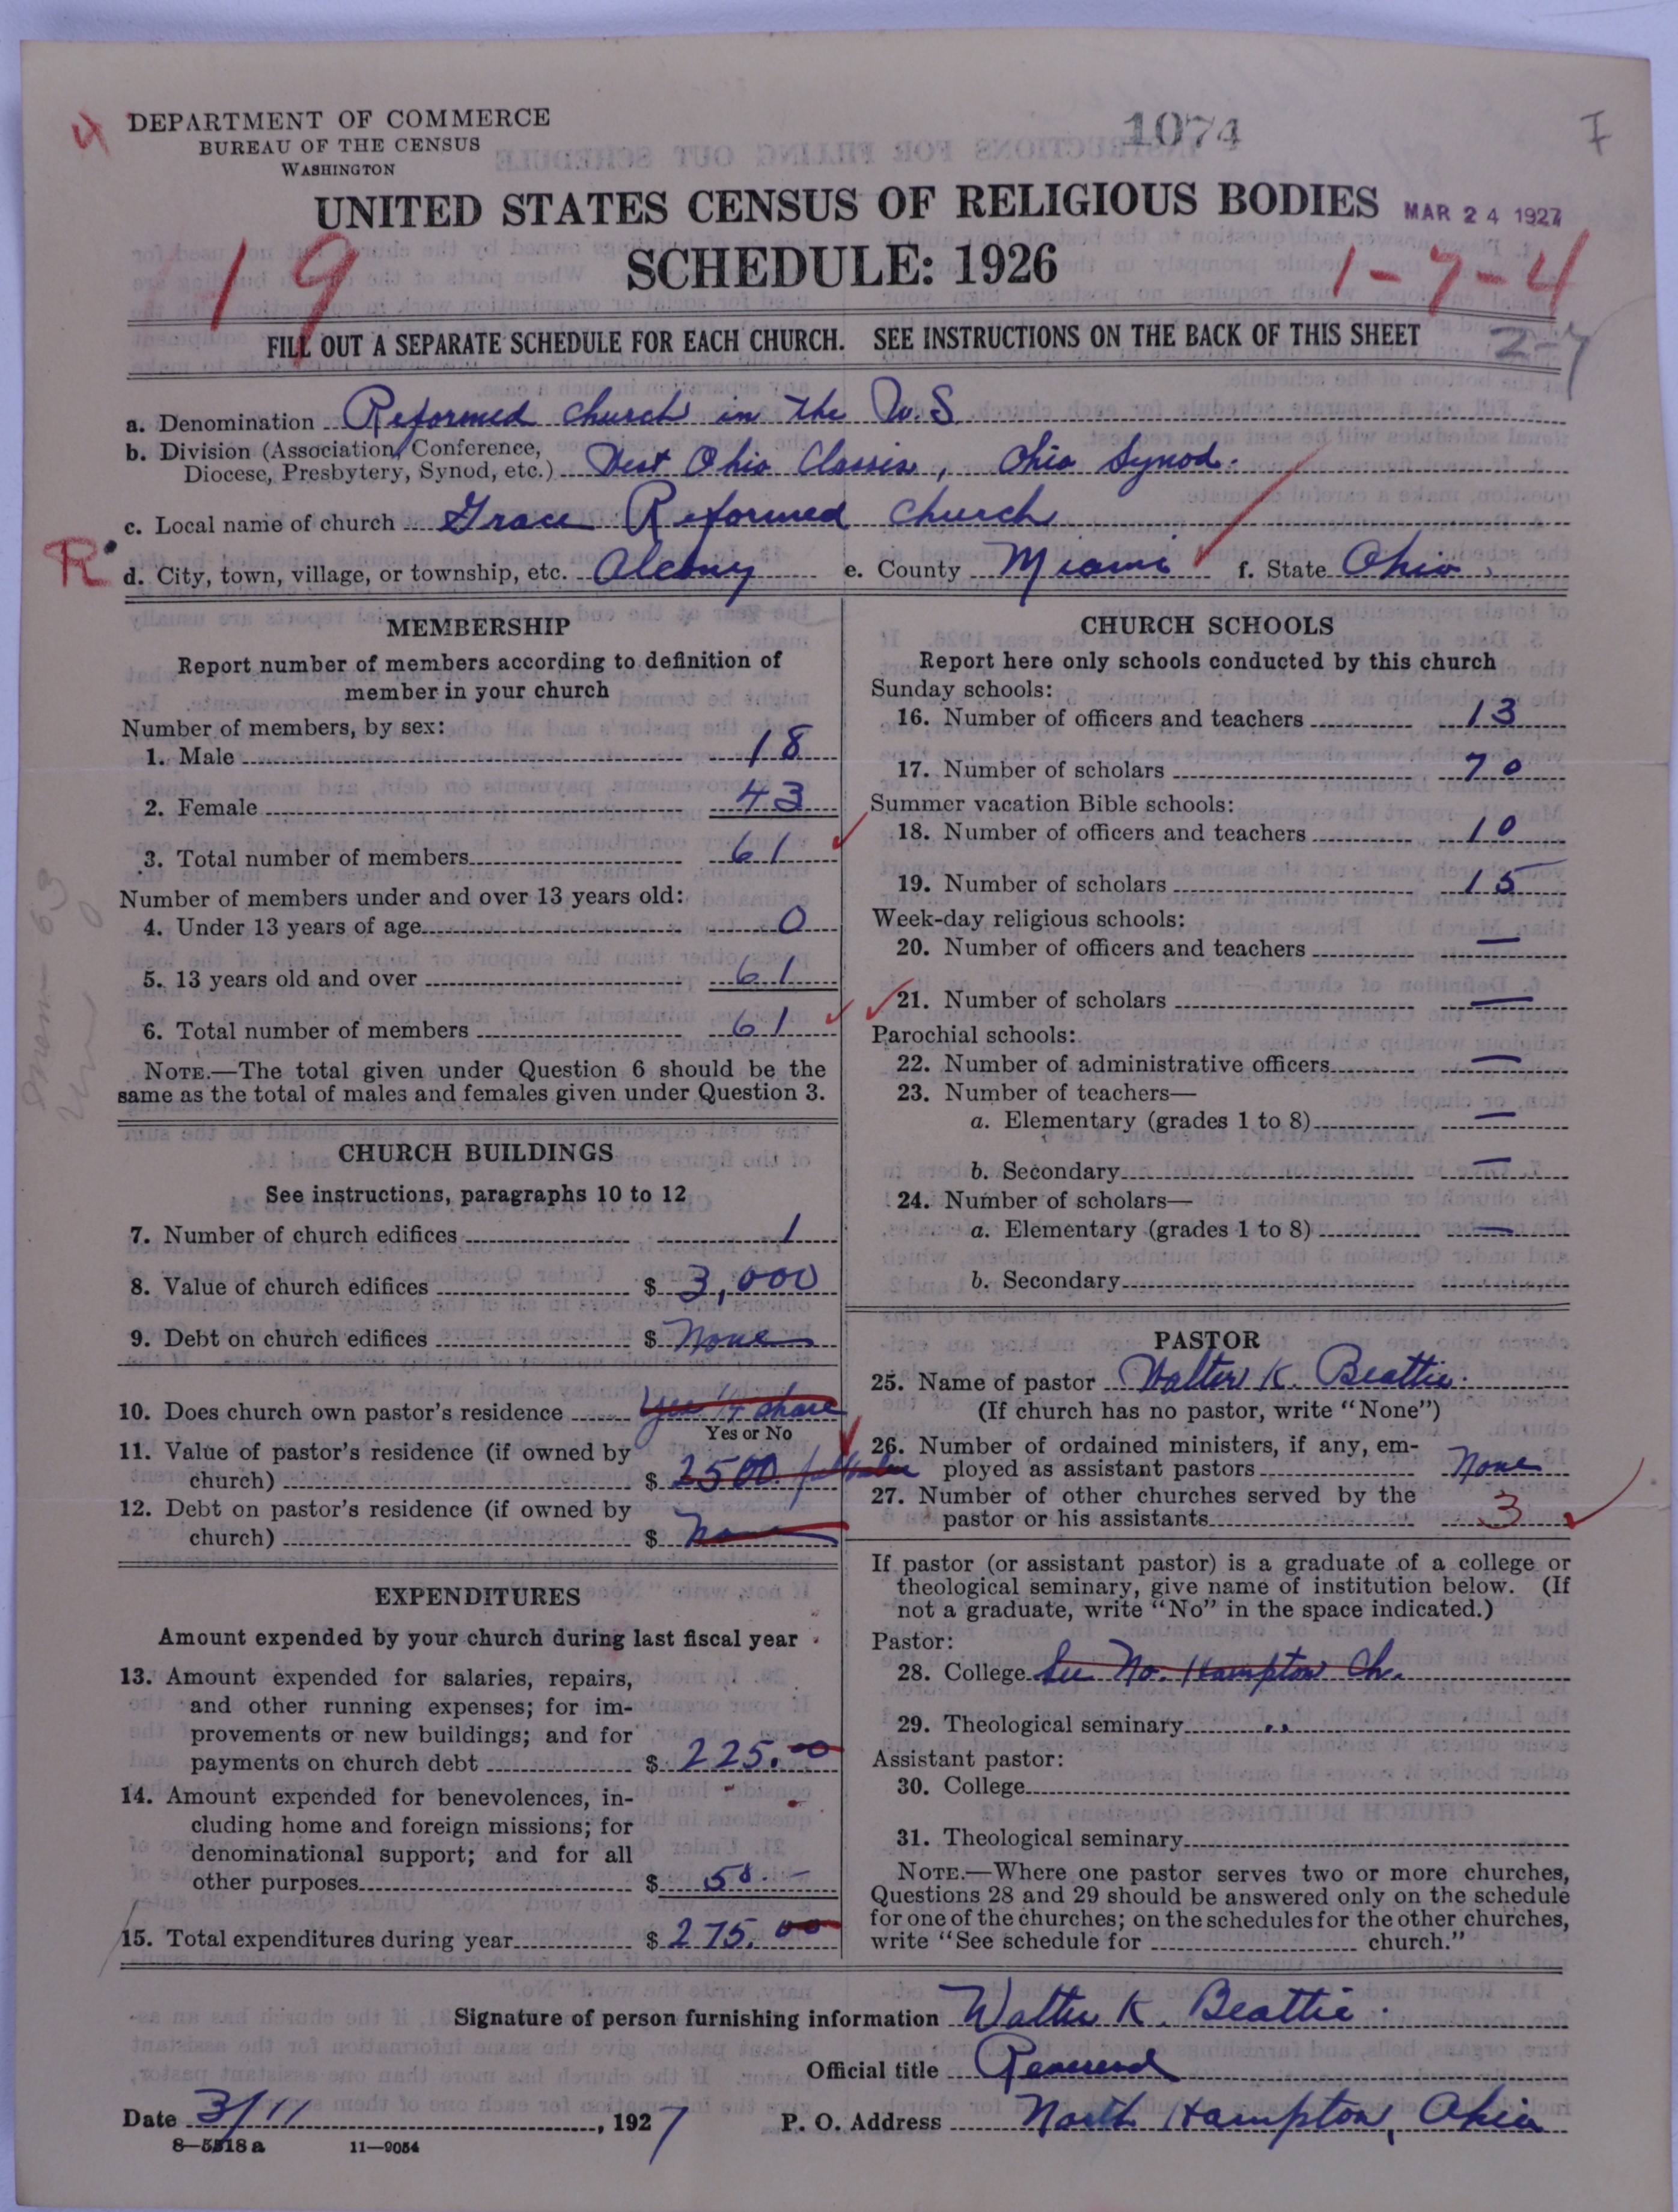 4 DEPARTMENT OF COMMERCE
BUREAU OF THE CENSUS
WASHINGTON
1074
7
UNITED STATES CENSUS OF RELIGIOUS BODIES
MAR 24 1927
SCHEDULE: 1926
19
1-7-4
FILL OUT A SEPARATE SCHEDULE FOR EACH CHURCH. SEE INSTRUCTIONS ON THE BACK OF THIS SHEET
2-7
a. Denomination Reformed Church in the U.S.
b. Division (Association, Conference,
Diocese, Presbytery, Synod, etc.) West Ohio Classis, Ohio Synod.
c. Local name of church Grace Reformed Church
R d. City, town, village, or township, etc. Alcony e. County Miami f. State Ohio
MEMBERSHIP
Report number of members according to definition of
member in your church
Number of members, by sex:
1. Male 18
2. Female 43
3. Total number of members 61
Number of members under and over 13 years old:
4. Under 13 years of age 0
5. 13 years old and over 61
6. Total number of members 61
NOTE.—The total given under Question 6 should be the
same as the total of males and females given under Question 3.
CHURCH BUILDINGS
See instructions, paragraphs 10 to 12
7. Number of church edifices 1
8. Value of church edifices $ 3,000
9. Debt on church edifices $ None
10. Does church own pastor's residence yes 1/4 share
Yes or No
11. Value of pastor's residence (if owned by
church) $ 2500. full value
12. Debt on pastor's residence (if owned by
church) $ None
EXPENDITURES
Amount expended by your church during last fiscal year
13. Amount expended for salaries, repairs,
and other running expenses; for im-
provements or new buildings; and for
payments on church debt $ 225.00
14. Amount expended for benevolences, in-
cluding home and foreign missions; for
denominational support; and for all
other purposes $ 50.-
15. Total expenditures during year $ 275.00
CHURCH SCHOOLS
Report here only schools conducted by this church
Sunday schools:
16. Number of officers and teachers 13
17. Number of scholars 70
Summer vacation Bible schools:
18. Number of officers and teachers 10
19. Number of scholars 15
Week-day religious schools:
20. Number of officers and teachers —
21. Number of scholars —
Parochial schools:
22. Number of administrative officers —
23. Number of teachers—
a. Elementary (grades 1 to 8) —
b. Secondary —
24. Number of scholars—
a. Elementary (grades 1 to 8) —
b. Secondary
PASTOR
25. Name of pastor Walter K. Beattie.
(If church has no pastor, write "None")
26. Number of ordained ministers, if any, em-
ployed as assistant pastors None
27. Number of other churches served by the
pastor or his assistants 3
If pastor (or assistant pastor) is a graduate of a college or
theological seminary, give name of institution below. (If
not a graduate, write "No" in the space indicated.)
Pastor:
28. College See No. Hampton Ch.
29. Theological seminary "
Assistant pastor:
30. College
31. Theological seminary
NOTE.—Where one pastor serves two or more churches,
Questions 28 and 29 should be answered only on the schedule
for one of the churches; on the schedules for the other churches,
write "See schedule for church."
Signature of person furnishing information Walter K. Beattie.
Official title Reverend
Date 3/11, 1927 P. O. Address North Hampton, Ohio
8—5518 a 11—9054